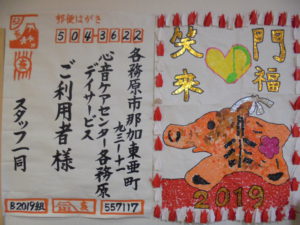 郵便はがき
5043622
各務原市那加東亜町
九三-十一
心音ケアセンター各務原
デイサービス
ご利用者様
スタッフ一同
亥
B2019組
亥
557117
笑門
来福
2019